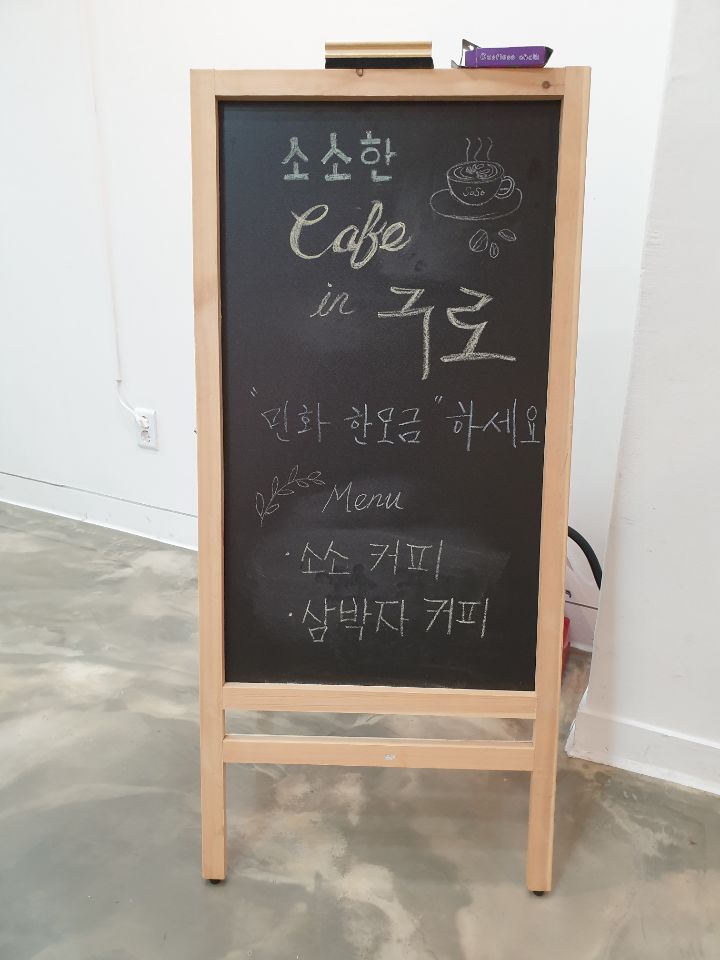 소소한
SoSo
Cafe
in 구로
"민화 한모금" 하세요
Menu
· 소소 커피
· 삼박자 커피
Dustless chalk